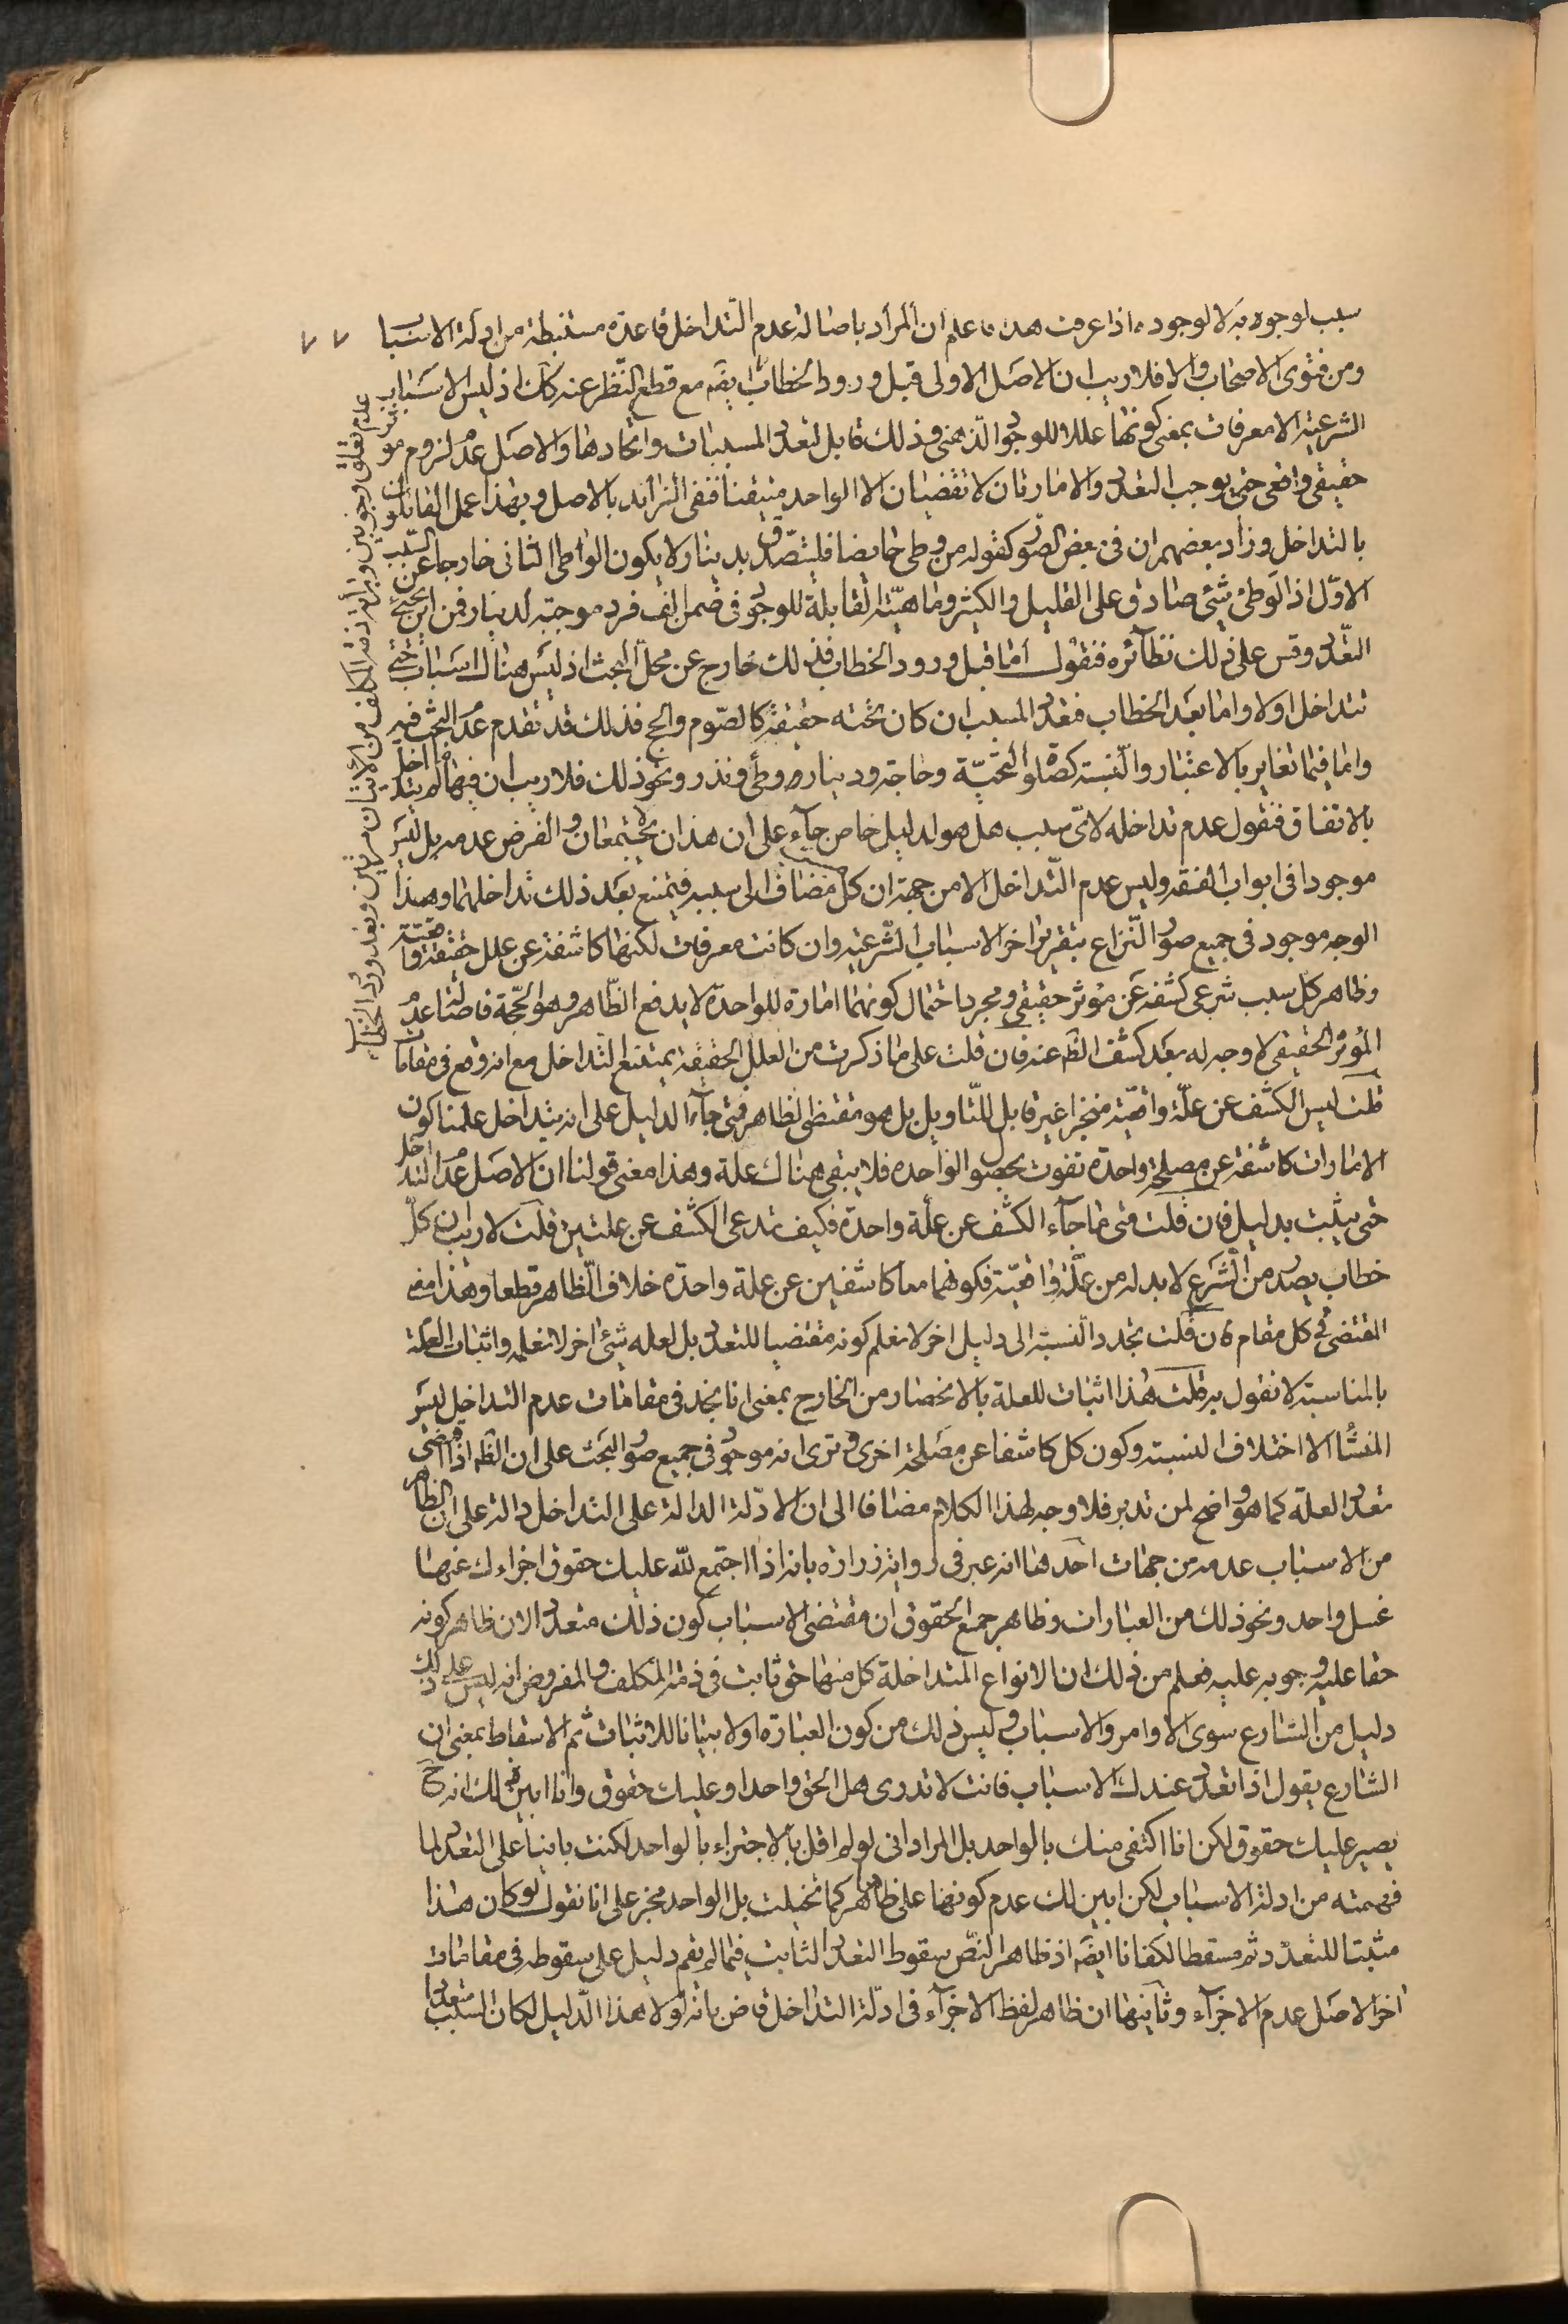 سبب لوجوبه لا لوجوده اذا عرفت هذا فاعلم ان المراد باصالة عدم التداخل قاعدة مستنبطة من ادلة الاسباب
ومن فتوى الاصحاب والا فلا ريب ان الاصل الاولى قبل ورود الخطاب ايضه مع قطع النظر عنه كان اذ ليس الاسباب
الشرعية الا معرفات بمعنى كونها عللا للوجود الذهنى وذلك قابل لتعدد المسببات واتحادها والاصل عدم لزوم مؤثر
حقيقى واقعى حتى يوجب التعدد والامارتان لا تقضيان الا الواحد متيقنا فنفى الزائد بالاصل وبهذا عمل القائلون
بالتداخل وزاد بعضهم ان فى بعض الصور كقوله من وطى حايضا فليتصدق بدينار ولا يكون الواطى الثانى خارجا عن السبب
الاول اذ الوطى شئ صادق على القليل والكثير وماهيته القابلة للوجود فى ضمن الف فرد موجبة لدينار فمن اين يجئ
التعدد وقس على ذلك نظائره فنقول اما قبل ورود الخطاب فذلك خارج عن محل البحث اذ ليس هناك اسباب حتى
تتداخل اولا واما بعد الخطاب فتعدد المسبب ان كان تحته حقيقة كالصوم والحج فذلك قد تقدم عدم البحث فيه
واما فيما تغاير بالاعتبار والنسبة كصلوة التحية وحاجة ودينار وطى ونذر ونحو ذلك فلا ريب ان فيها ما لم يتداخل
بالاتفاق فنقول عدم تداخله لاى سبب هل هو لدليل خاص جاء على ان هذان لا يجتمعان والفرض عدمه بل ليس
موجودا فى ابواب الفقه وليس عدم التداخل الا من جهة ان كل مضاف الى سببه فيمتنع بعد ذلك تداخلهما وهذا
الوجه موجود فى جميع صور النزاع بتقرير اخر الاسباب الشرعية وان كانت معرفات لكنها كاشفة عن علل حقيقة واقعية
وظاهر كل سبب شرعى كشفه عن مؤثر حقيقى ومجرد احتمال كونهما امارة للواحدة لا يدفع الظاهر وهو الحجة فاصالة عدم
المؤثر الحقيقى لا وجه له بعد كشف الظه عنه فان قلت على ما ذكرت من العلل الحقيقة يمتنع التداخل مع انه وقع فى مقامات
قلت ليس الكشف عن علة واقعية منجزا غير قابل للتاويل بل هو مقتضى الظاهر فمتى جاء الدليل على انه يتداخل علمنا كون
الامارات كاشفة عن مصلحة واحدة تفوت بحصول الواحده فلا يبقى هناك علة وهذا معنى قولنا ان الاصل عدم التداخل
حتى يثبت بدليل فان قلت متى ما جاء الكشف عن علة واحدة فكيف تدعى الكشف عن علتين قلت لا ريب ان كل
خطاب يصدر من الشرع لا بد له من علة واقعية فكونهما معا كاشفين عن علة واحدة خلاف الظاهر قطعا وهذا
المقتضى فى كل مقام فان قلت تجدد النسبة الى دليل اخر لا نعلم كونه مقتضيا للتعدد بل لعله شئ اخر لا نعلمه واثبات العلة
بالمناسبة لا نقول به قلت هذا اثبات للعلة بالانحصار من الخارج بمعنى انا نجد فى مقامات عدم التداخل ليس
المنشأ الا اختلاف النسبة وكون كل كاشفا عن مصلحة اخرى ونرى انه موجود فى جميع صور البحث على ان الظه اذا اقتضى
تعدد العلة كما هو واضح لمن تدبر فلا وجه لهذا الكلام مضافا الى ان الادلة الدالة على التداخل دالة على ان الظاهر
من الاسباب عدمه من جهات احدها انه عبر فى رواية زرارة بانه اذا اجتمع لله عليك حقوق اجزاءك عنها
غسل واحد ونحو ذلك من العبارات وظاهر جمع الحقوق ان مقتضى الاسباب كون ذلك متعددا لان ظاهر كونه
حقا عليه وجوبه عليه فعلم من ذلك ان الانواع المتداخلة كل منها حق ثابت فى ذمة المكلف والمفروض انه ليس على ذلك
دليل من الشارع سوى الاوامر والاسباب وليس ذلك من كون العبارة اولا بيانا للاثبات ثم الاسقاط بمعنى ان
الشارع يقول اذا تعدد عندك الاسباب فانت لا تدرى هل الحق واحد او عليك حقوق وانا ابين لك انه ح
يصير عليك حقوق لكن انا اكتفى منك بالواحد بل المراد انى لو لم اقل بالاجتزاء بالواحد لكنت بانيا على التعدد لما
فهمته من ادلة الاسباب لكن ابين لك عدم كونها على ظاهرها كما تخيلت بل الواحد مجز على انا نقول لو كان هذا
مثبتا للتعدد ثم مسقطا لكفانا ايضه اذ ظاهر النص سقوط التعدد الثابت فيما لم يقم دليل على سقوطه فى مقامات
اخر الاصل عدم الاجزاء وثانيها ان ظاهر لفظ الاجزاء فى ادلة التداخل قاض بانه لولا هذا الدليل لكان السبب متعددا
عدم تعلق وجوبين وبرائة ذمة المكلف من الاتيان مرتين وبعد ورود الخطاب